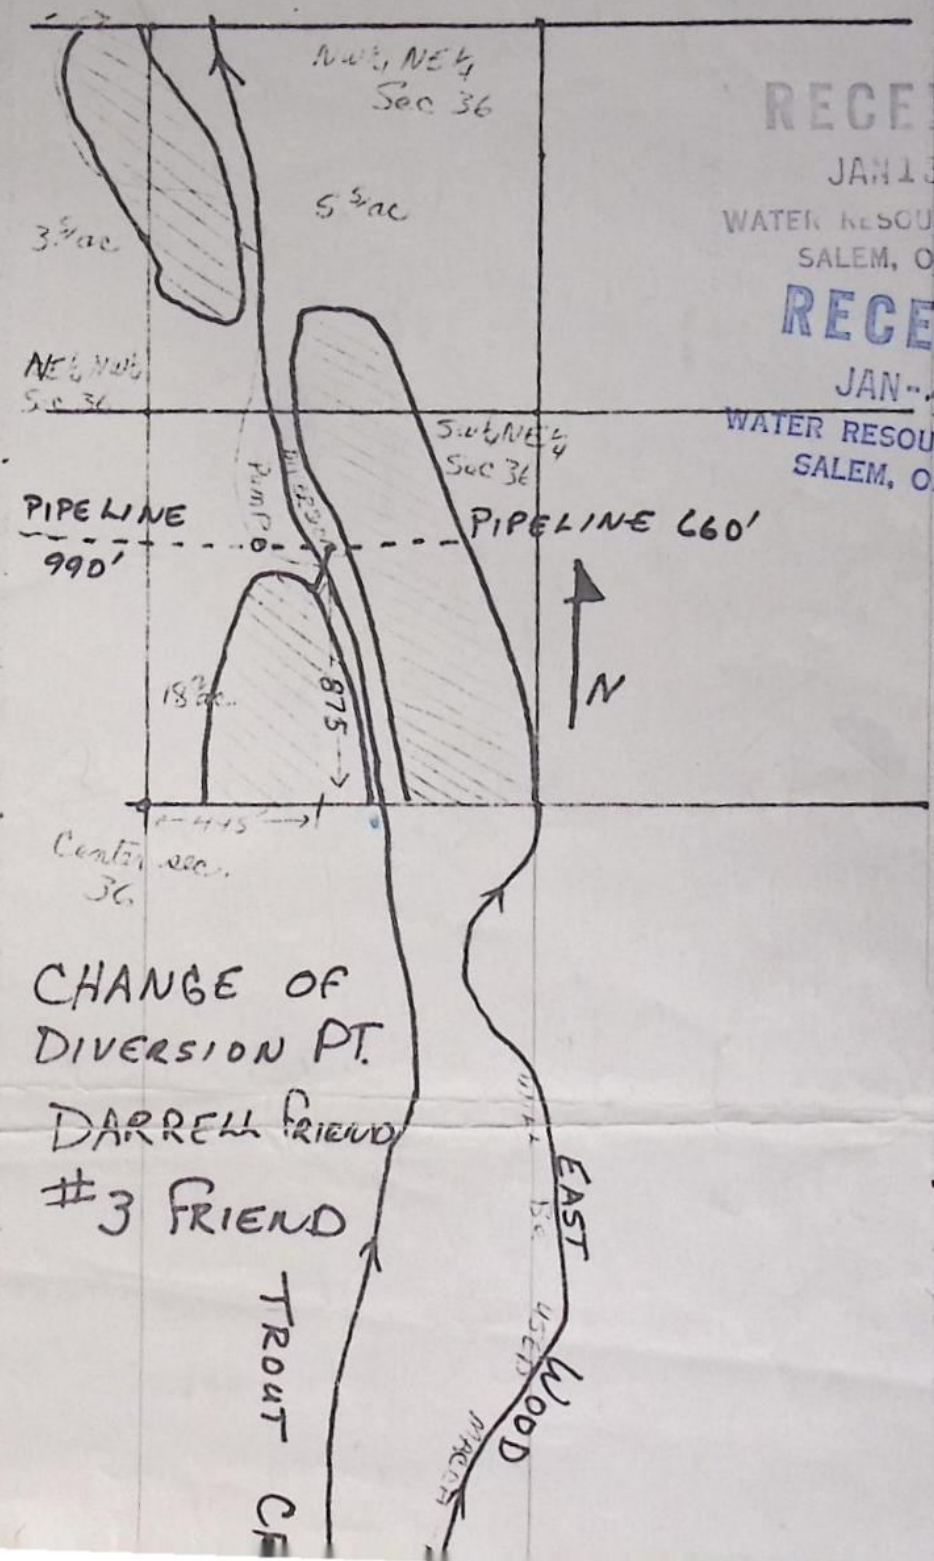 NW¼ NE¼
Sec 36
RECE
JAN 13
WATER RESOU
SALEM, O
5 5/ac
3 5/ac
RECE
JAN
WATER RESOU
SALEM, O
NE¼ NW¼
Sec 36
SW¼ NE¼
Sec 36
PUMP
PIPELINE
990'
PIPELINE 660'
N
875
445'
Center sec.
36
CHANGE OF
DIVERSION PT.
DARRELL FRIEND
#3 FRIEND
TROUT CR
EAST
WOOD
Be
USED